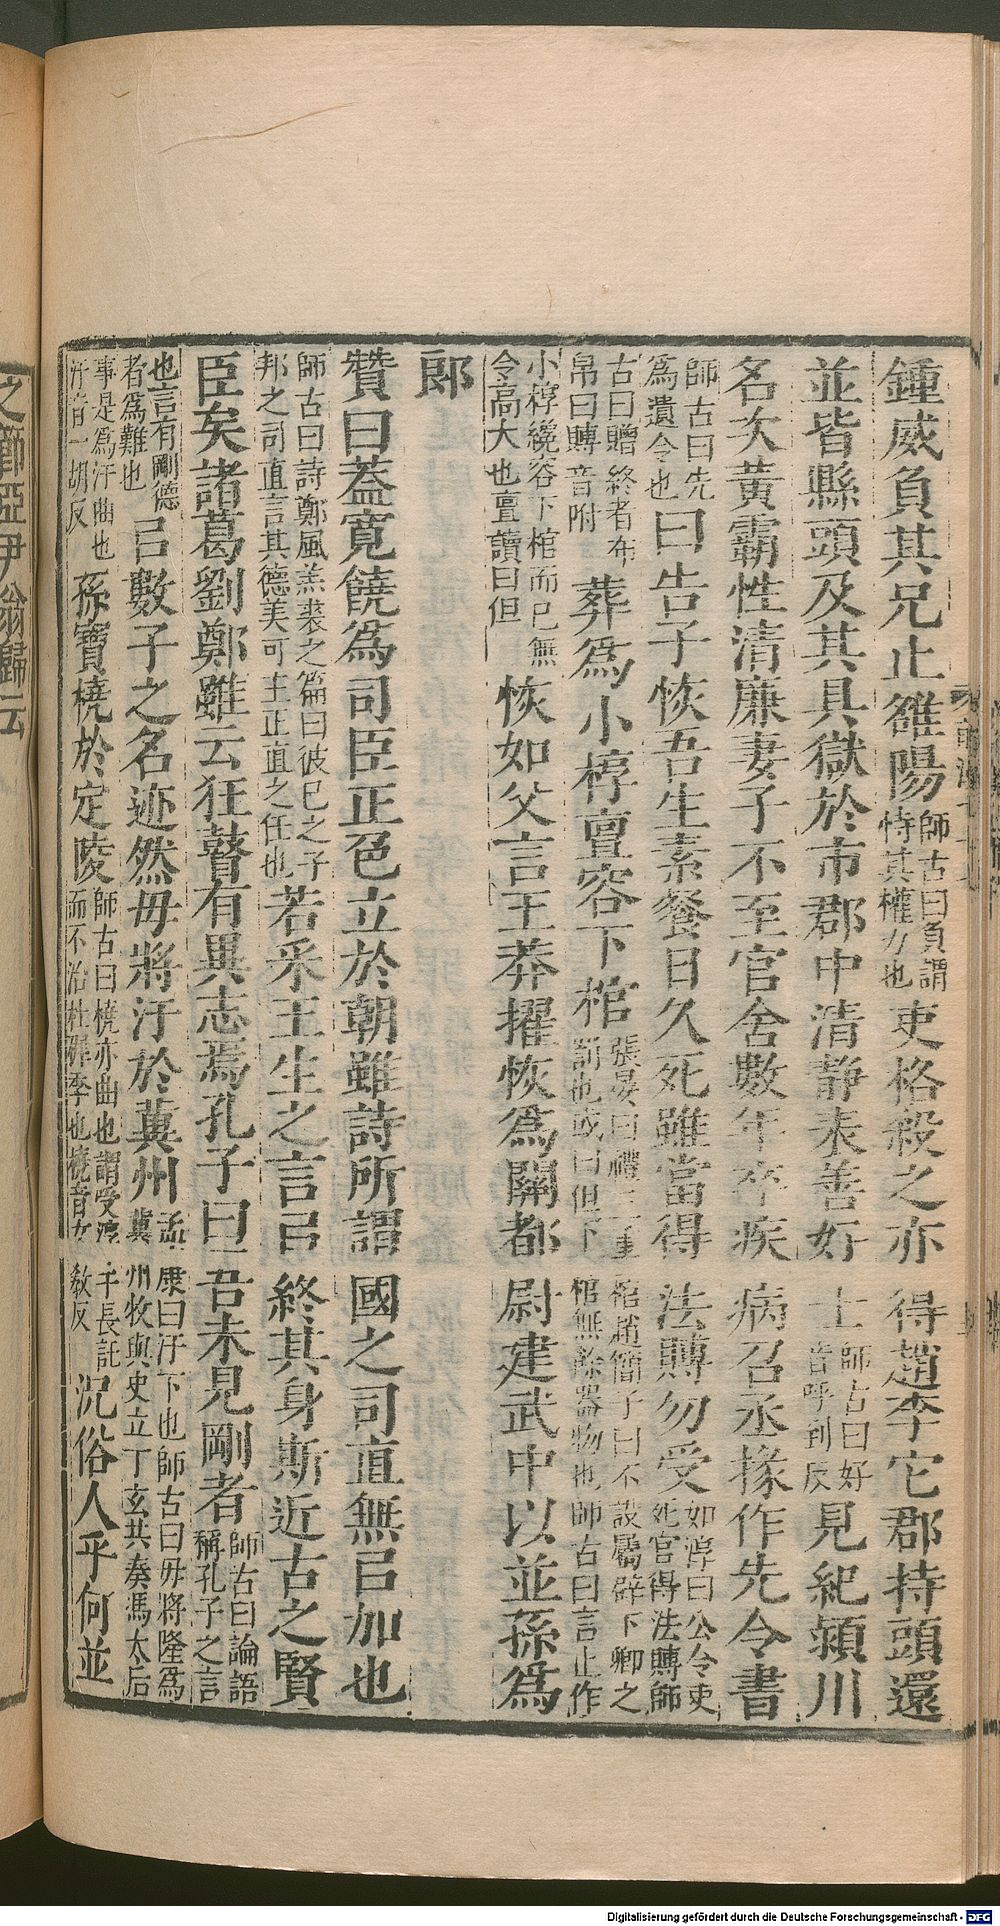 鍾威負其兄止雒陽師古曰負謂恃其權力也吏格殺之亦得趙李它郡持頭還
並皆縣頭及其具獄於市郡中清静表善好士師古曰好音呼到反見紀潁川
名次黃霸性清廉妻子不至官舍數年卒疾病召丞掾作先令書
師古曰先爲遺令也曰告子恢吾生素餐日久死雖當得法賻勿受如淳曰公令吏死官得法賻師
古曰贈終者布帛曰賻音附葬爲小椁亶容下棺張晏曰禮三重棺趙簡子曰不設屬辟下卿之罰也或曰但下棺無餘器物也師古曰言止作
小椁纔容下棺而已無令高大也亶讀曰但恢如父言王莽擢恢爲關都尉建武中以並孫爲
郎
贊曰蓋寛饒爲司臣正色立於朝雖詩所謂國之司直無㠯加也
師古曰詩鄭風羔裘之篇曰彼己之子邦之司直言其德美可主正直之任也若釆王生之言㠯終其身斯近古之賢
臣矣諸葛劉鄭雖云狂瞽有異志焉孔子曰吾未見剛者師古曰論語稱孔子之言
也言有剛德者爲難也㠯數子之名迹然毋將汙於冀州孟康曰汙下也師古曰毋將隆爲冀州牧與史立丁玄共奏馮太后
事是爲汙曲也汙音一胡反孫寶橈於定陵師古曰橈亦曲也謂受淳于長託而不治杜穉季也橈音女教反況俗人乎何並
之節亞尹翁歸云
Digitalisierung gefördert durch die Deutsche Forschungsgemeinschaft - DFG